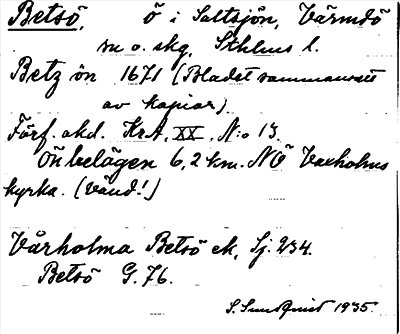 Betsö, ö i Saltsjön, Värmdö
sn o. skg, Sthlms l.
Betz ön 1671 (Bladet sammansatt
av kopior).
Förf. okd. KrA, XX, N:o 13.
Ön belägen 6,2 km. NÖ Vaxholms
kyrka. (Vänd!)
Vårholma Betsö ek, Sj. 234.
Betsö G. 76.
S. Sundqvist 1935.